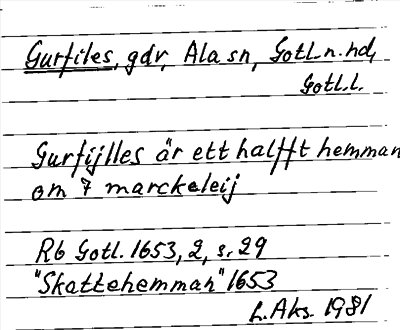 Gurfiles, gdr, Ala sn, Gotl. n. hd,
Gotl. l.
Gurfijlles är ett halfft hemman
om 7 marckeleij
Rb Gotl. 1653, 2, s. 29
"Skattehemman" 1653
L. Aks. 1981